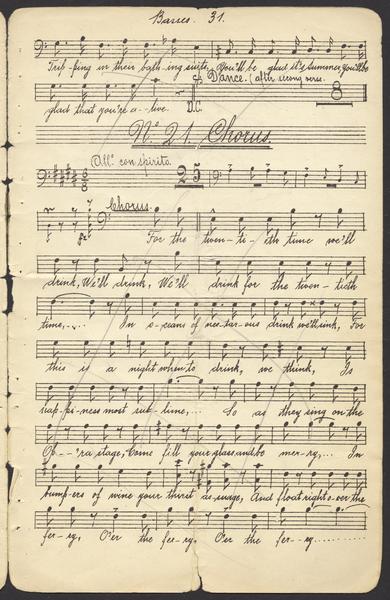 Basses. 31.
Trip-ping in their bath-ing suits, You'll be glad it's summer, You'll be
Dance. (after second verse.
8
glad that you're a-live. D.C.
No. 21. Chorus.
All.o con spirito.
25
Chorus.
For the twen-ti-eth time we'll
drink, We'll drink, We'll drink for the twen-tieth
time,... In o-ceans of nec-tar-ous drink we'll sink, For
this is a night when to drink, we think, Is
hap-pi-ness most sub-lime,... So as they sing on the
Op---'ra stage, Come fill your glass and be mer-ry,... In
bump-ers of wine your thirst as-suage, And float right o-ver the
fer-ry, O'er the fer-ry, O'er the fer--ry...........